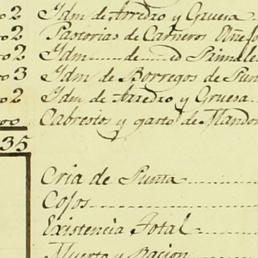 2 Idm de Arredro y Gruesa
2 Pastorias de Carneros
2 Idm de id Primales
3 Idm de Borregos de Pun
2 Idm de Arredro y Gruesa
00 Cabresto y gasto de Mandon
35
Cria de Punta
Cojos
Existencia Total
Muerta y Racion